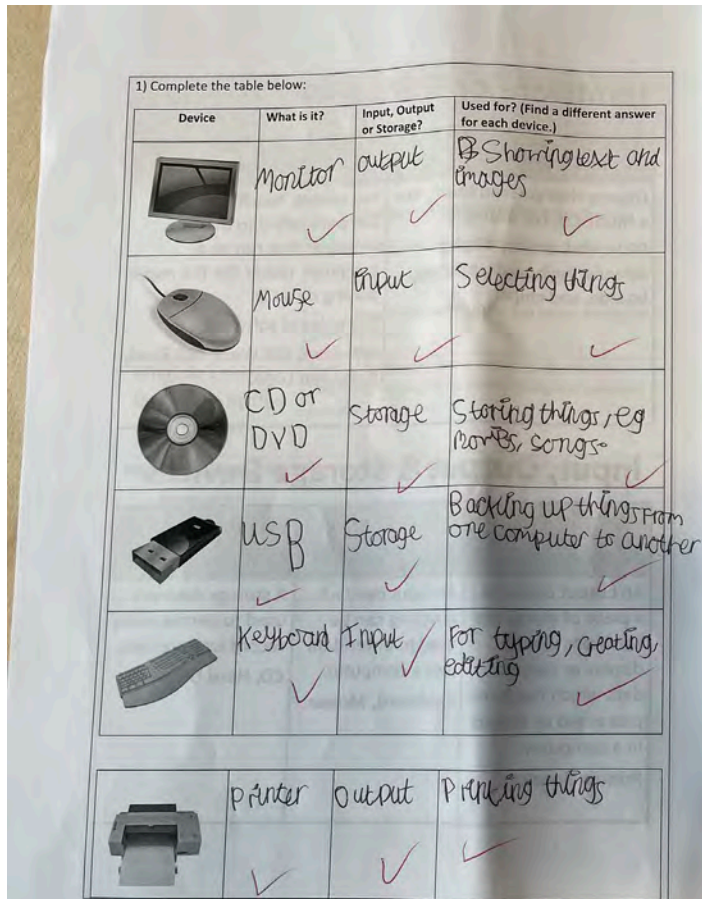 1) Complete the table below:
Device
What is it?
Input, Output
or Storage?
Used for? (Find a different answer
for each device.)
Monitor
output
Showing text and
images
Mouse
input
Selecting things
CD or
DVD
Storage
Storing things, eg
movies, songs.
USB
Storage
Backing up things from
one computer to another
Keyboard
Input
For typing, creating,
editing
printer
Output
Printing things